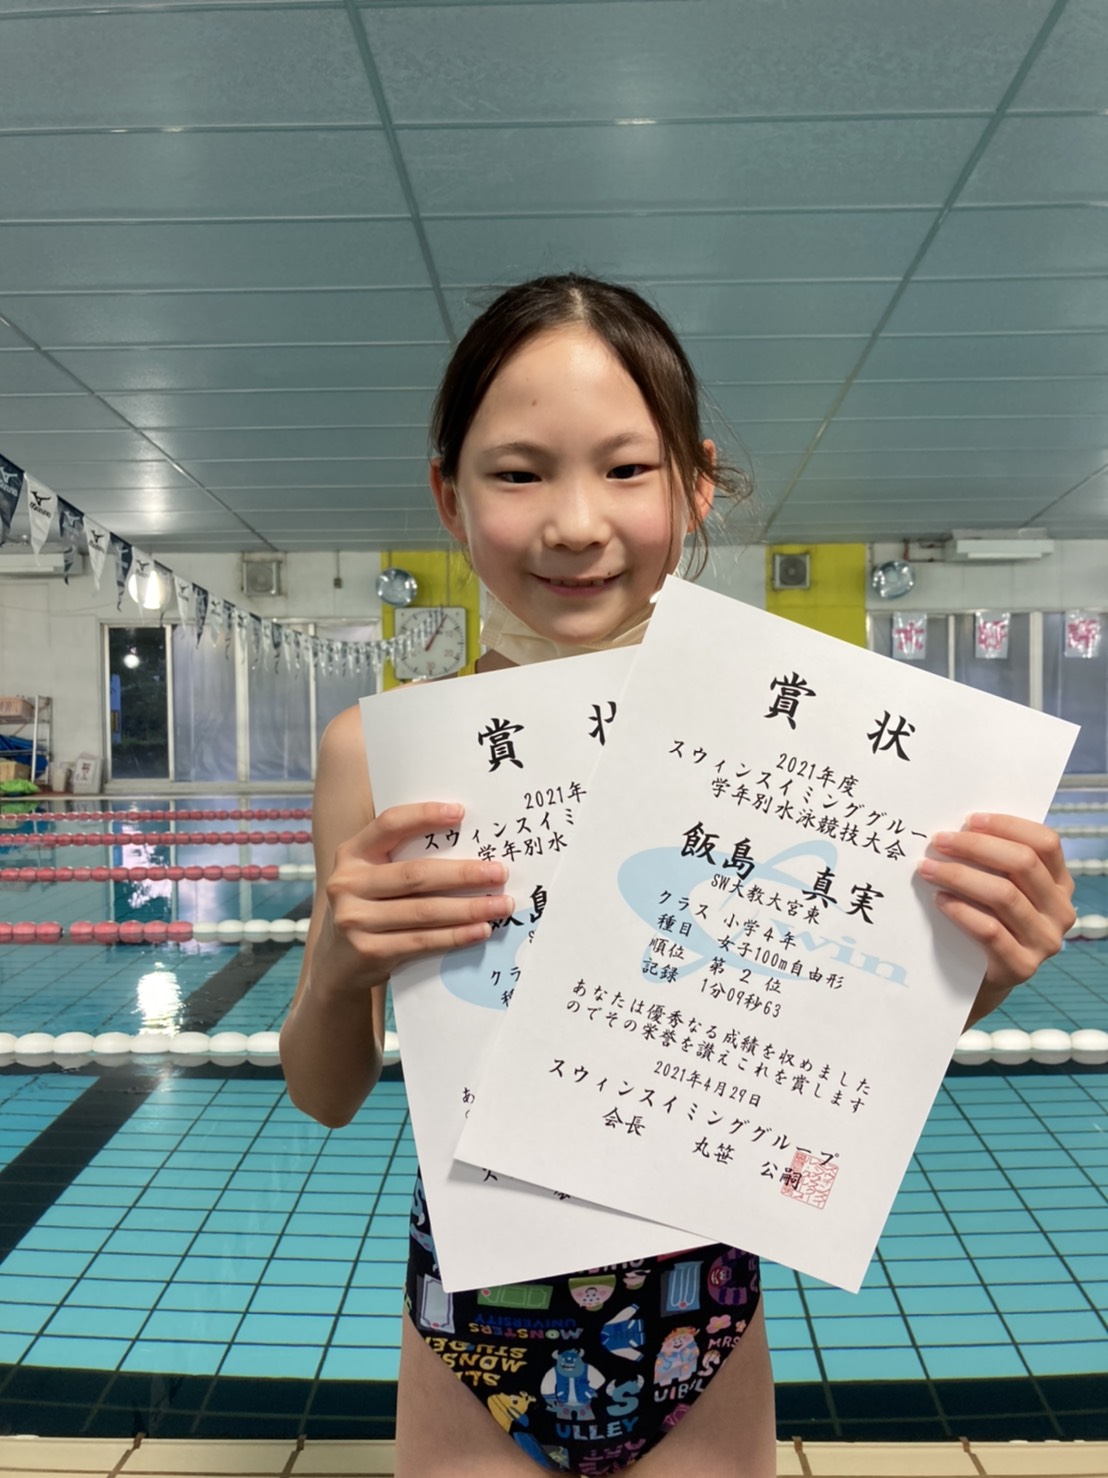 賞 状
2021年度
スウィンスイミンググルー
学年別水泳競技大会
飯島 真実
SW大教大宮東
クラス 小学4年
種目 女子100m自由形
順位 第 2 位
記録 1分09秒63
あなたは優秀なる成績を収めました
のでその栄誉を讃えこれを賞します
2021年4月29日
スウィンスイミンググループ
会長 丸笹 公嗣
win
賞
2021年
スウィンスイミ
学年別水
クラ
あ
MIZUNO
MONSTERS
UNIVERSITY
ULLEY
MRS